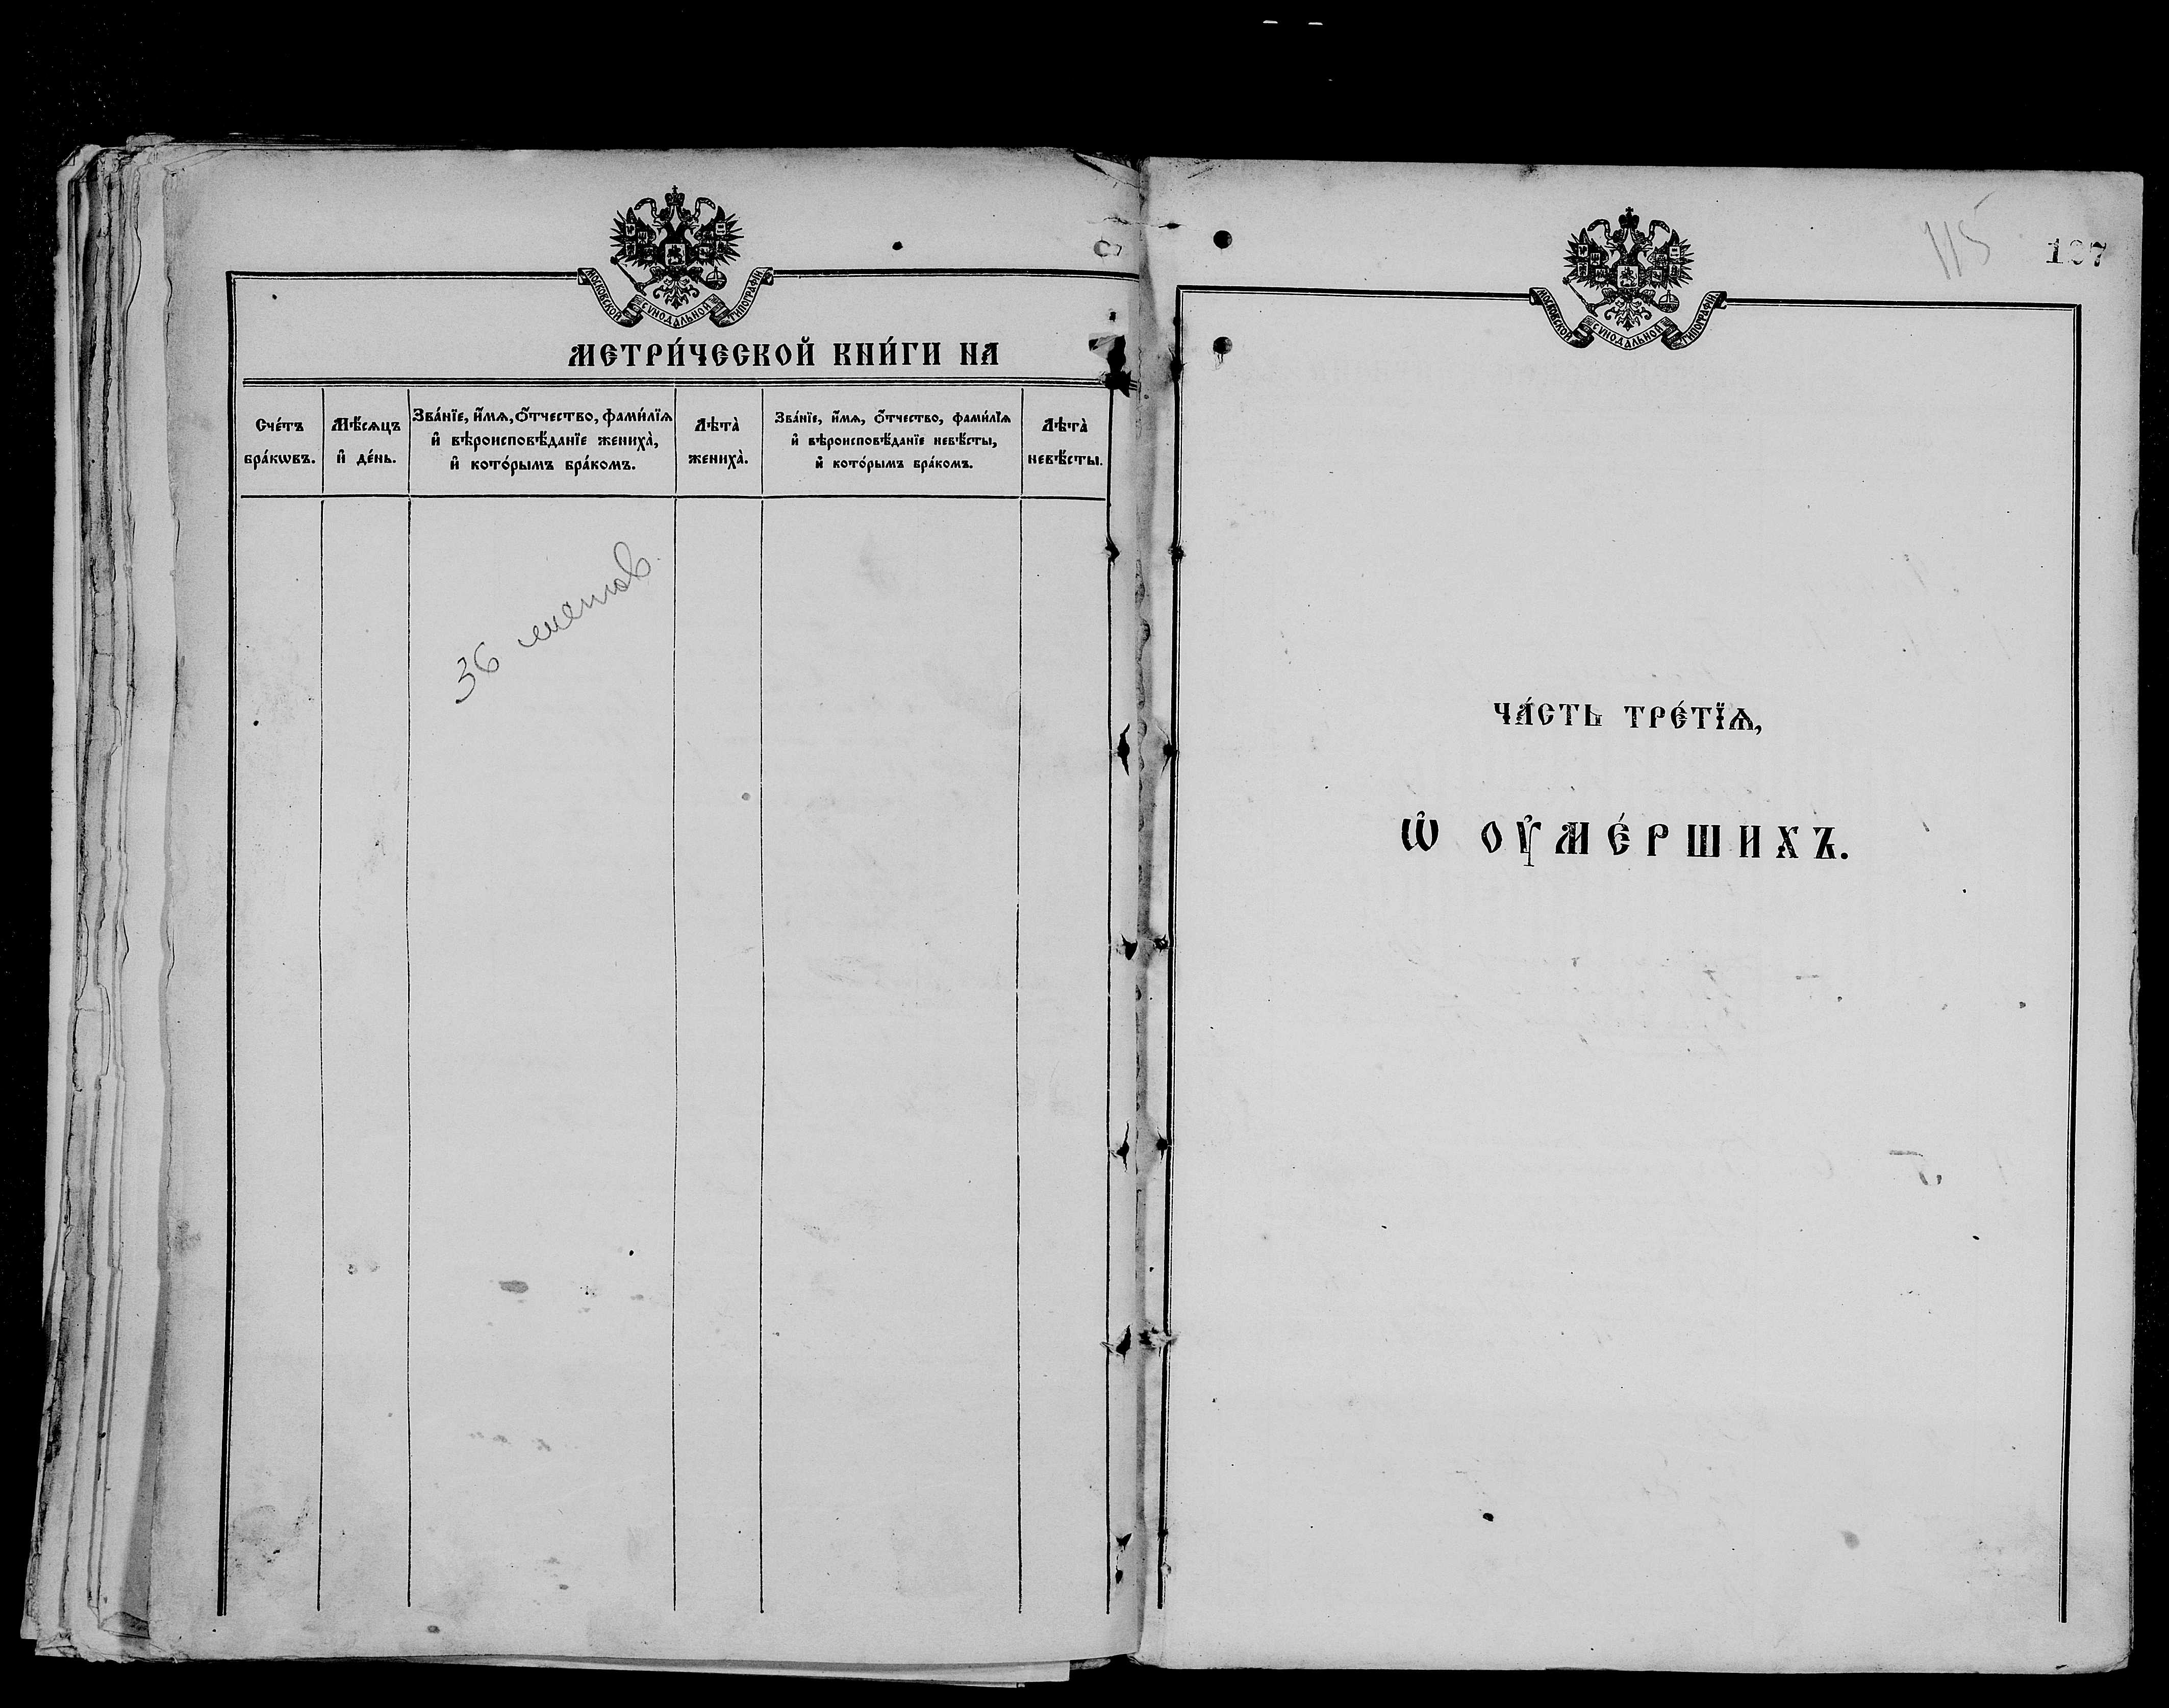 МОСКОВСКОЙ СѴНОДАЛЬНОЙ ТИПОГРАФІИ
МЕТРИ́ЧЕСКОЙ КНИ́ГИ НА
Сче́тъ
бра́кѡвъ.
Мѣ́сѧцъ
и҆ де́нь.
Зва́нїе, и҆́мѧ, ѻ҆́тчество, фами́лїѧ
и҆ вѣроисповѣ́данїе жениха̀,
и҆ кото́рымъ бра́комъ.
Лѣта̀
жениха̀.
Зва́нїе, и҆́мѧ, ѻ҆́тчество, фами́лїѧ
и҆ вѣроисповѣ́данїе невѣ́сты,
и҆ кото́рымъ бра́комъ.
Лѣта̀
невѣ́сты.
36 листов
115
107
МОСКОВСКОЙ СѴНОДАЛЬНОЙ ТИПОГРАФІИ
ЧА́СТЬ ТРЕ́ТЇѦ,
Ѡ҆ ОУ҆МЕ́РШИХЪ.